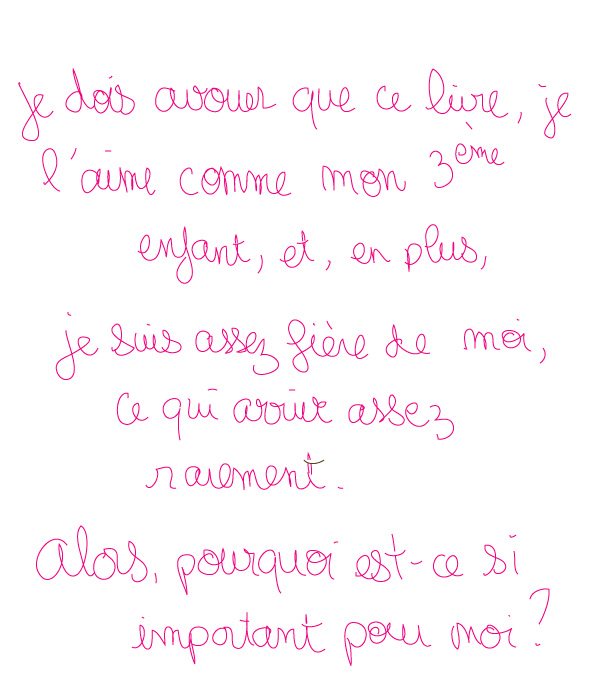 je dois avouer que ce livre, je
l'aime comme mon 3ème
enfant, et, en plus,
je suis assez fière de moi,
ce qui arrive assez
rarement.
Alors, pourquoi est-ce si
important pour moi ?